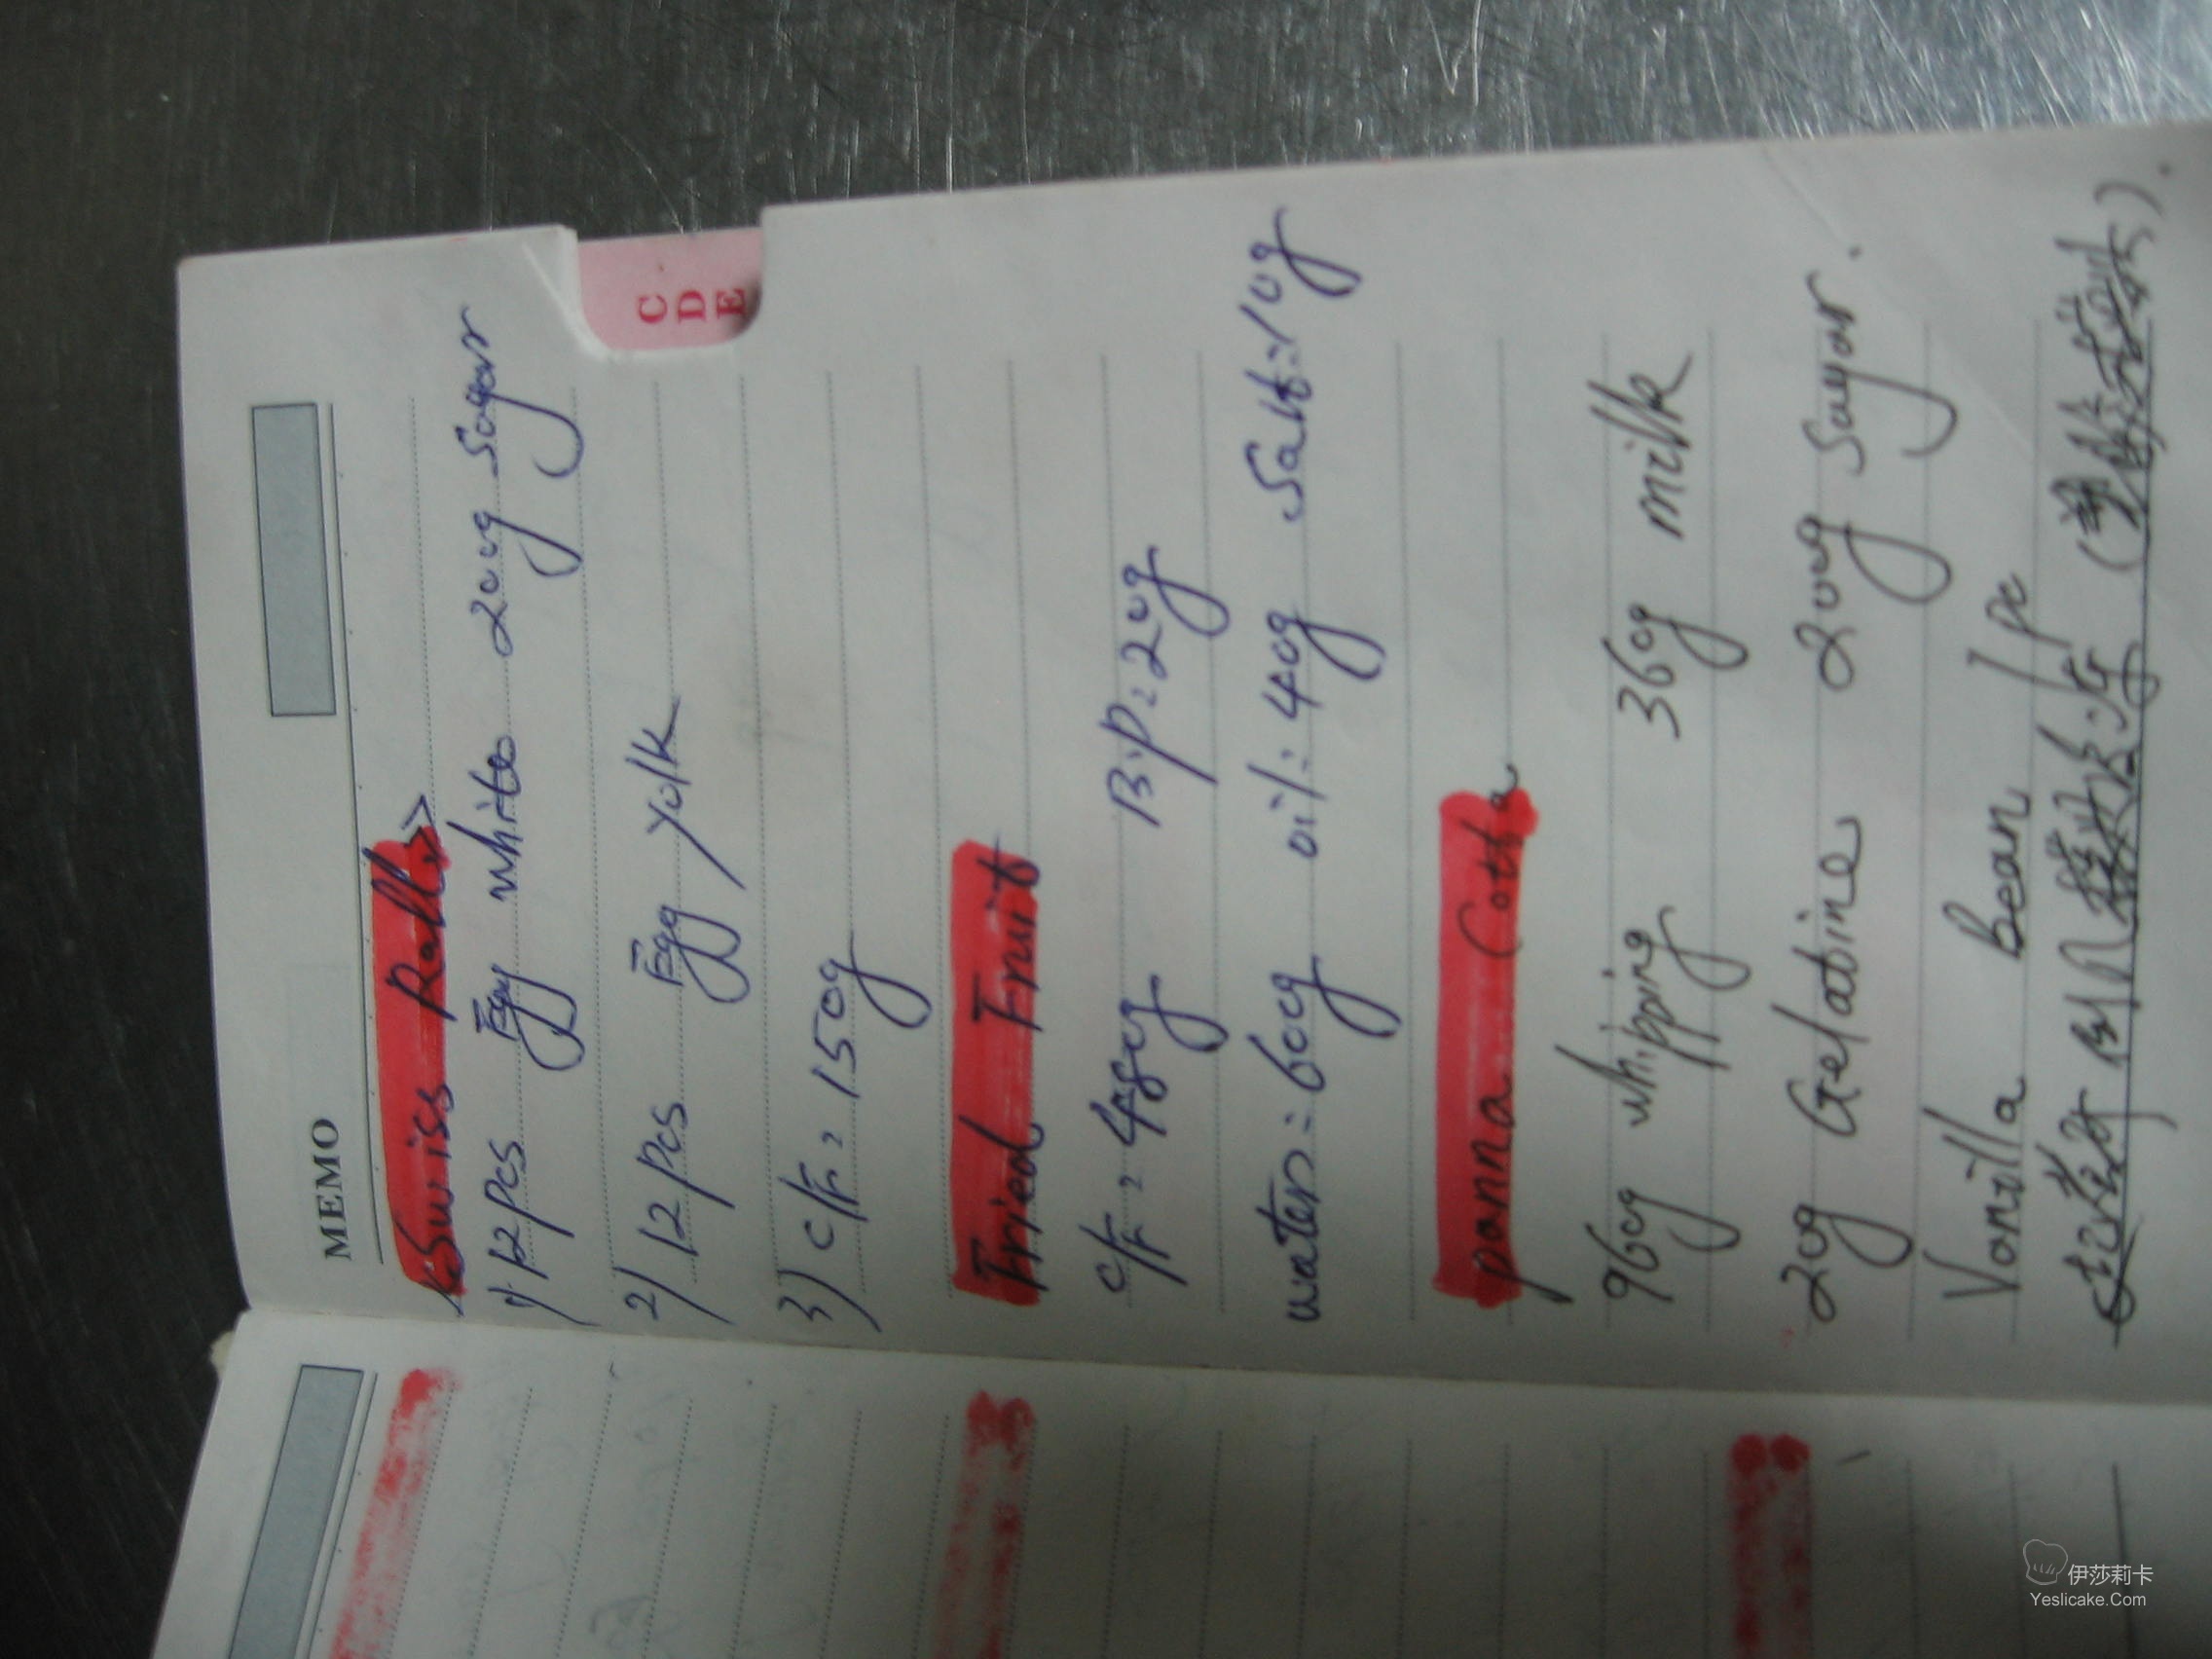 MEMO
C
D
E
<Swiss Roll>
1) 12pcs Egg white 200g Sogar
2) 12pcs Egg yolk
3) C/F = 150g
Fried Fruit
C/F = 480g B.P = 20g
water = 600g oil = 40g Salt = 10g
panna Cotta
960g whipping 360g milk
20g Gelatine 200g Sugar.
Vanilla Bean 1pc
伊莎莉卡
Yeslicake.Com